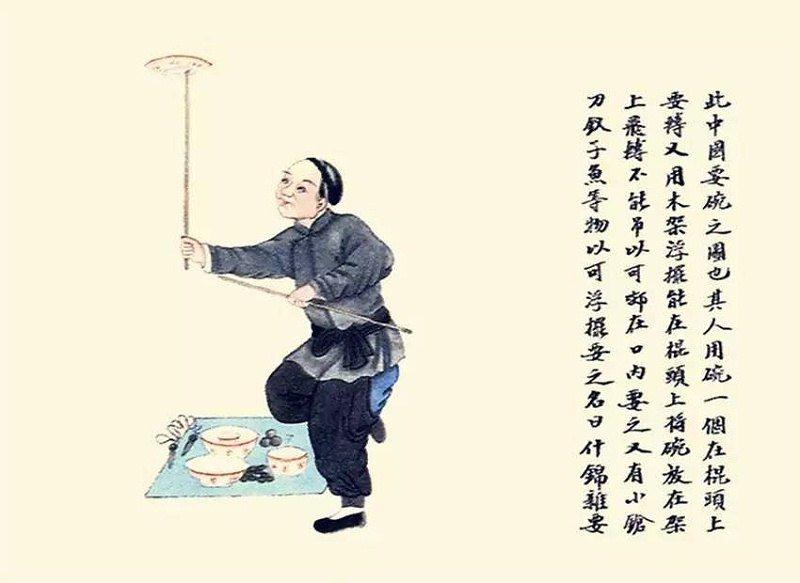 此中國耍碗之圖也其人用碗一個在棍頭上
耍轉又用木架浮擺能在棍頭上將碗放在架
上飛轉不能吊以可在口内耍之又有小鎗
刀釵子魚等物以可浮擺耍之名曰什錦雜耍